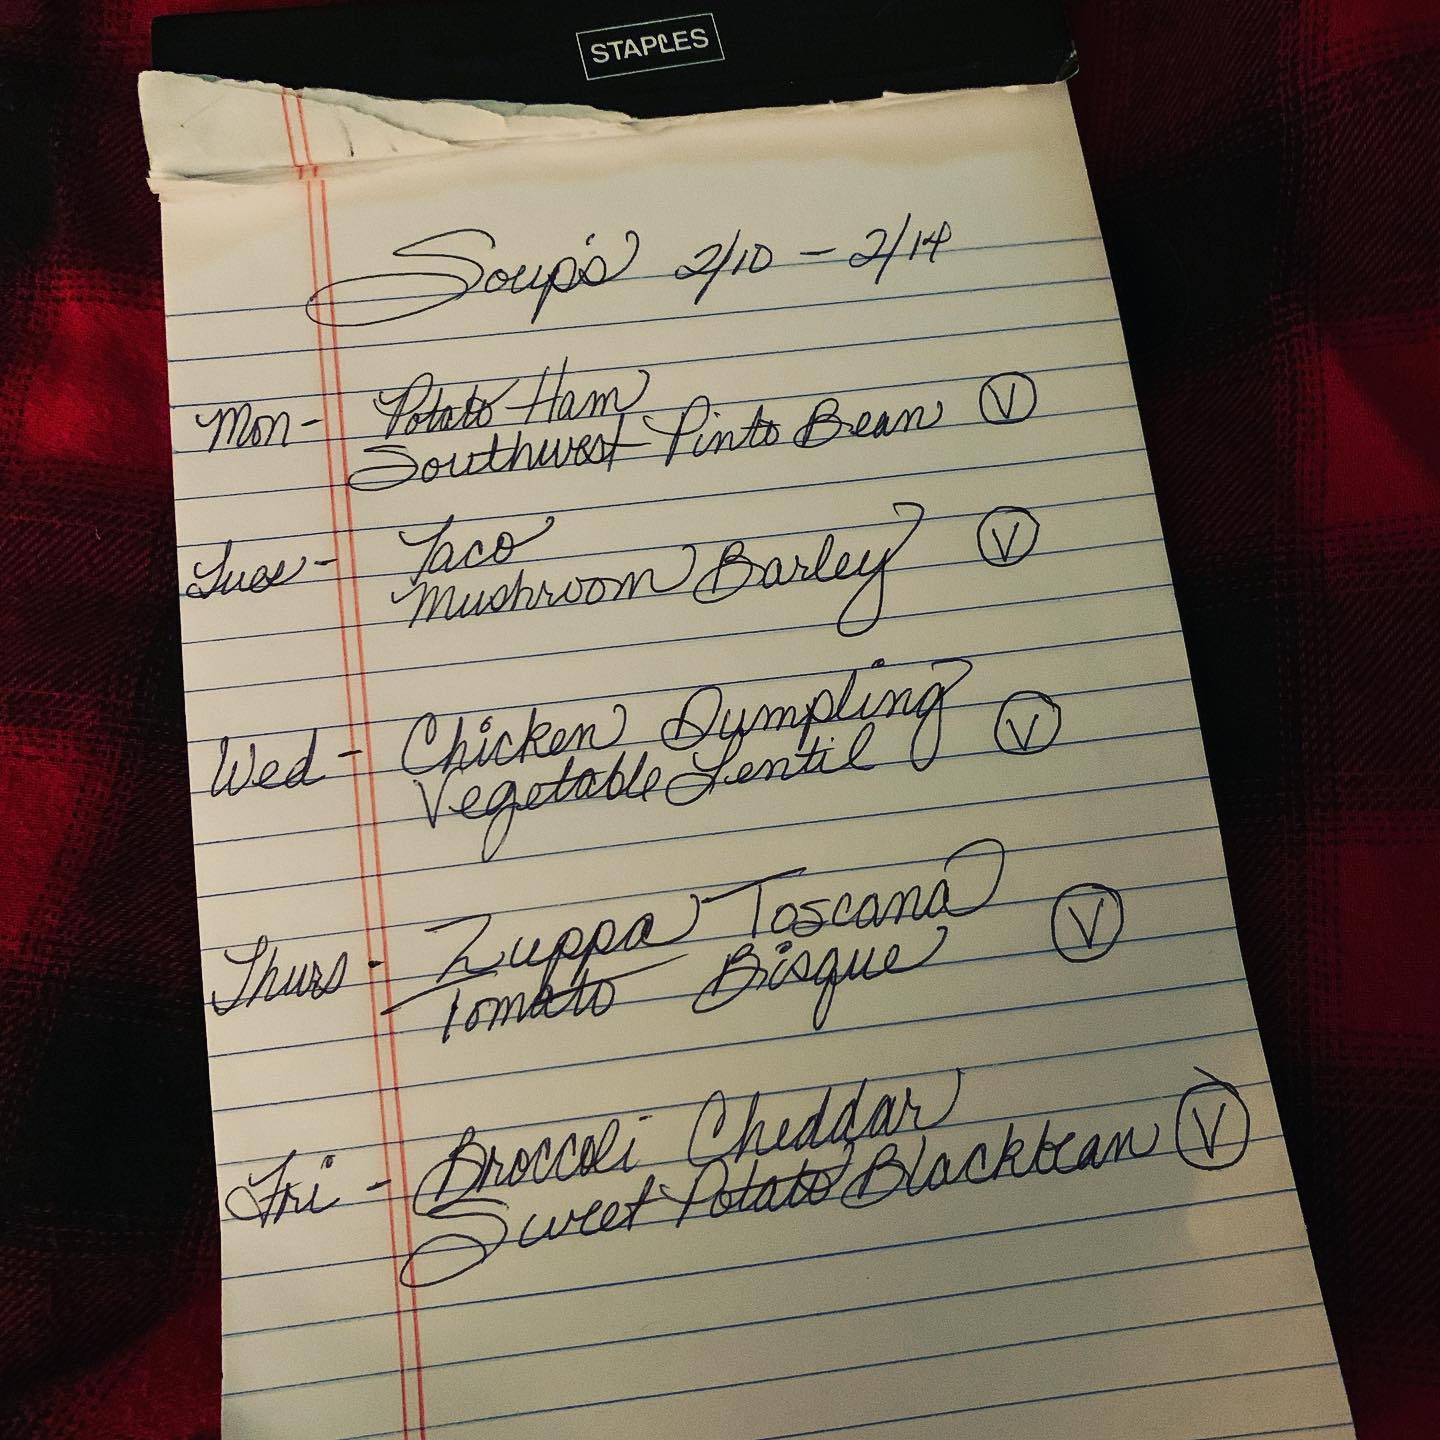 STAPLES
Soup's 2/10 - 2/14
Mon - Potato Ham
Southwest Pinto Bean V
Tues - Taco
Mushroom Barley V
Wed - Chicken Dumpling
Vegetable Lentil V
Thurs - Zuppa Toscana
Tomato Bisque V
Fri - Broccoli Cheddar
Sweet Potato Blackbean V